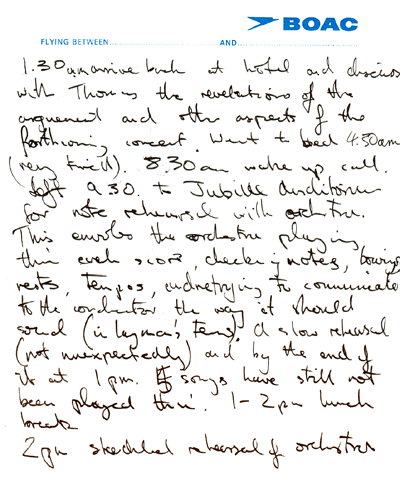 BOAC
FLYING BETWEEN.......................................AND.......................................
1.30 am arrive back at hotel and discuss
with Thomas the revelations of the
argument and other aspects of the
forthcoming concert. Went to bed 4.30am
(very tired). 8.30 am wake up call.
Left 9.30. to Jubilee Auditorium
for note rehearsal with orchestra.
This involves the orchestra playing
their each score, checking notes, bowing
rests, tempos, and trying to communicate
to the conductor the way it should
sound (in layman's terms). A slow rehearsal
(not unexpectedly) and by the end of
it at 1pm. songs have still not
been played thru'. 1-2pm lunch
break
2pm scheduled rehearsal of orchestra